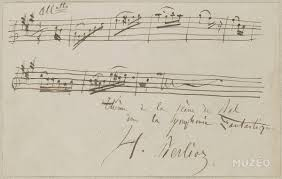 All^tto
Thème de la Scène de Bal
dans la Symphonie Fantastique
H. Berlioz
MUZEO